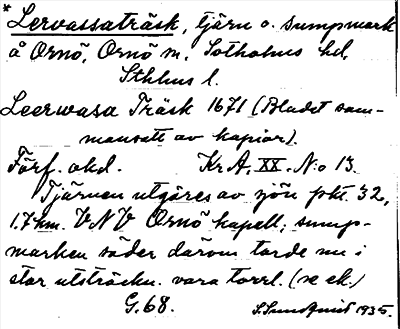 * Lervassaträsk, tjärn o. sumpmark
å Ornö, Ornö sn, Sotholms hd,
Sthlms l.
Leerwasa Träsk 1671 (Bladet sam-
mansatt av kopior).
Förf. okd. Kr.A. XX. N:o 13.
Tjärnen utgöres av sjön pkt. 32,
1.7 km. VNV Ornö kapell; sump-
marken söder därom torde nu i
stor utsträckn. vara torrl. (se ek.)
G. 68. S. Sundquist 1935.